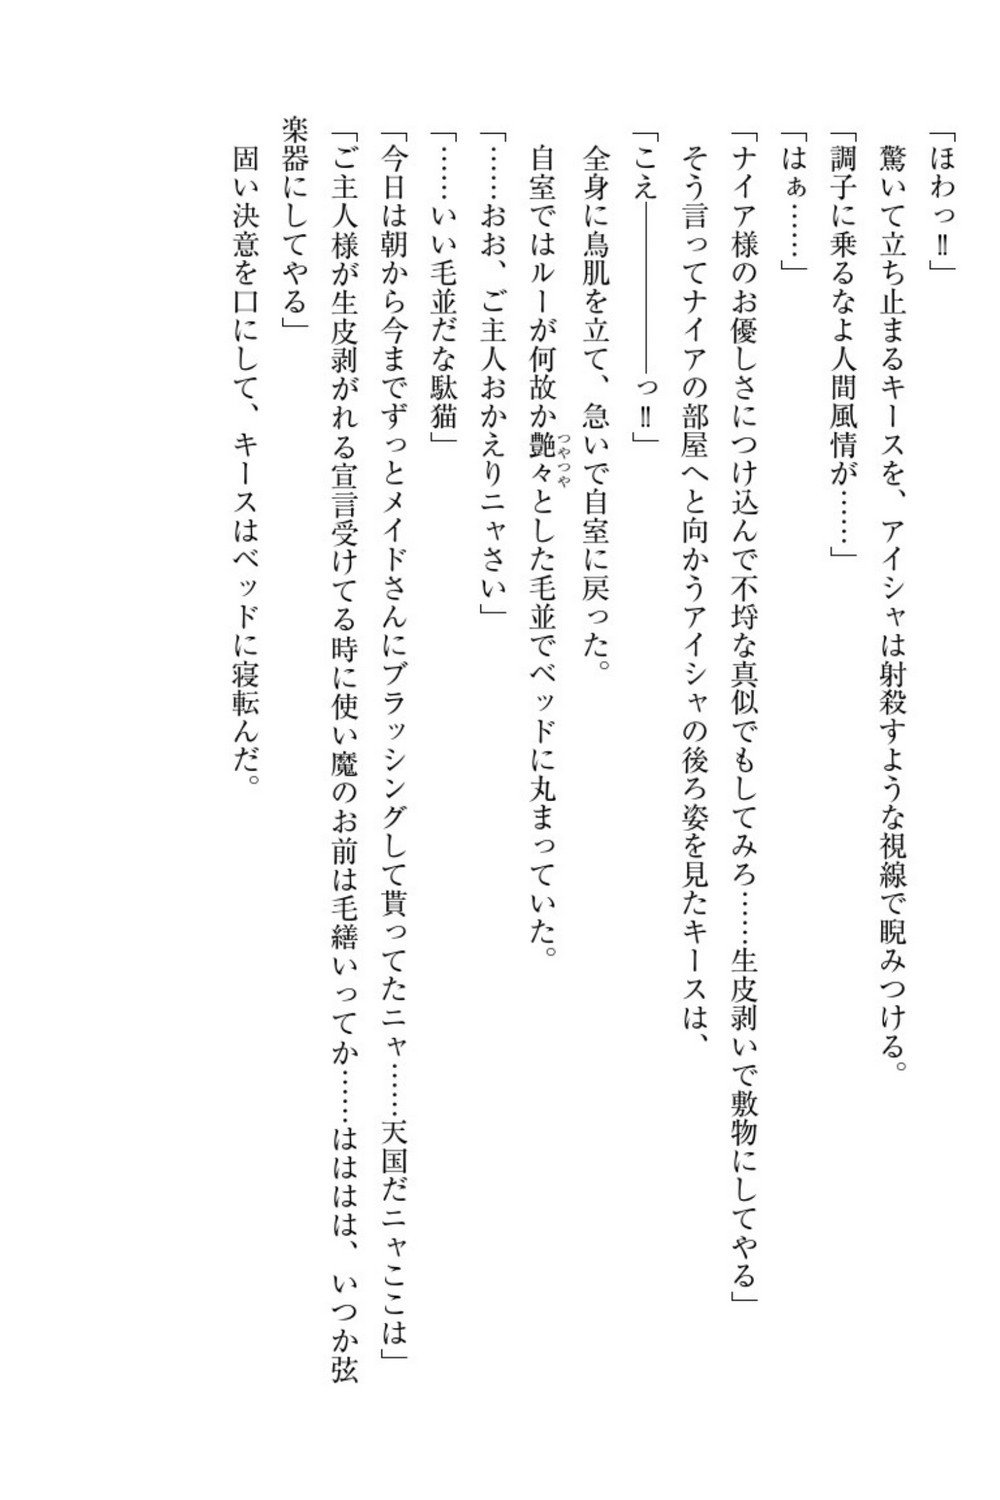 「ほわっ‼」
驚いて立ち止まるキースを、アイシャは射殺すような視線で睨みつける。
「調子に乗るなよ人間風情が……」
「はぁ……」
「ナイア様のお優しさにつけ込んで不埒な真似でもしてみろ……生皮剥いで敷物にしてやる」
そう言ってナイアの部屋へと向かうアイシャの後ろ姿を見たキースは、
「こえ――――――っ‼」
全身に鳥肌を立て、急いで自室に戻った。
自室ではルーが何故か艶々つやつやとした毛並でベッドに丸まっていた。
「……おお、ご主人おかえりニャさい」
「……いい毛並だな駄猫」
「今日は朝から今までずっとメイドさんにブラッシングして貰ってたニャ……天国だニャここは」
「ご主人様が生皮剥がれる宣言受けてる時に使い魔のお前は毛繕いってか……ははは、いつか弦
楽器にしてやる」
固い決意を口にして、キースはベッドに寝転んだ。